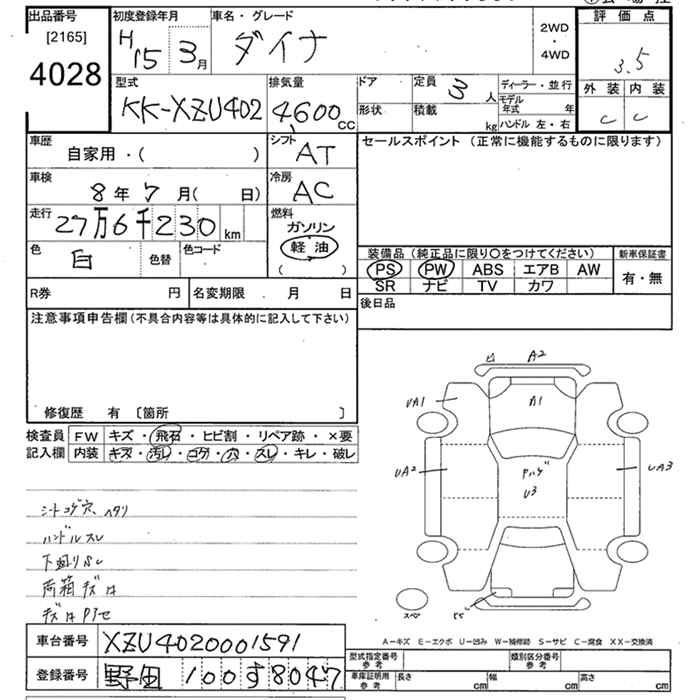 出品番号
[2165]
4028
初度登録年月
H15 3月
車名・グレード
ダイナ
2WD
・
4WD
評価点
3.5
外装 内装
C C
型式
KK-XZU402
排気量
4600 CC
ドア
形状
定員
3人
積載
kg
ディーラー・並行
モデル年式 年
ハンドル 左・右
車歴
自家用・( )
シフト
AT
セールスポイント (正常に機能するものに限ります)
車検
8年7月( 日)
冷房
AC
走行
27万6千230km
燃料
ガソリン
軽油
( )
色
白
色替
色コード
装備品 (純正品に限り○をつけてください)
新車保証書
PS PW ABS エアB AW
有・無
SR ナビ TV カワ
R券 円
名変期限 月 日
後日品
注意事項申告欄(不具合内容等は具体的に記入して下さい)
修復歴 有 〔箇所 〕
検査員
記入欄
FW キズ・飛石・ヒビ割・リペア跡・×要
内装 キズ・汚レ・コゲ・穴・スレ・キレ・破レ
シートコゲ穴、ヘタリ
ハンドルスレ
下廻りS
荷箱キズU
A2
UA1
A1
UA2
UA3
U3
スペア
A-キズ E-エクボ U-凹み W-補修跡 S-サビ C-腐食 XX-交換済
車台番号
XZU4020001591
登録番号
野田 100す8047
型式指定番号
参考
類別区分番号
参考
車庫証明用
参考
長さ cm
幅 cm
高さ cm